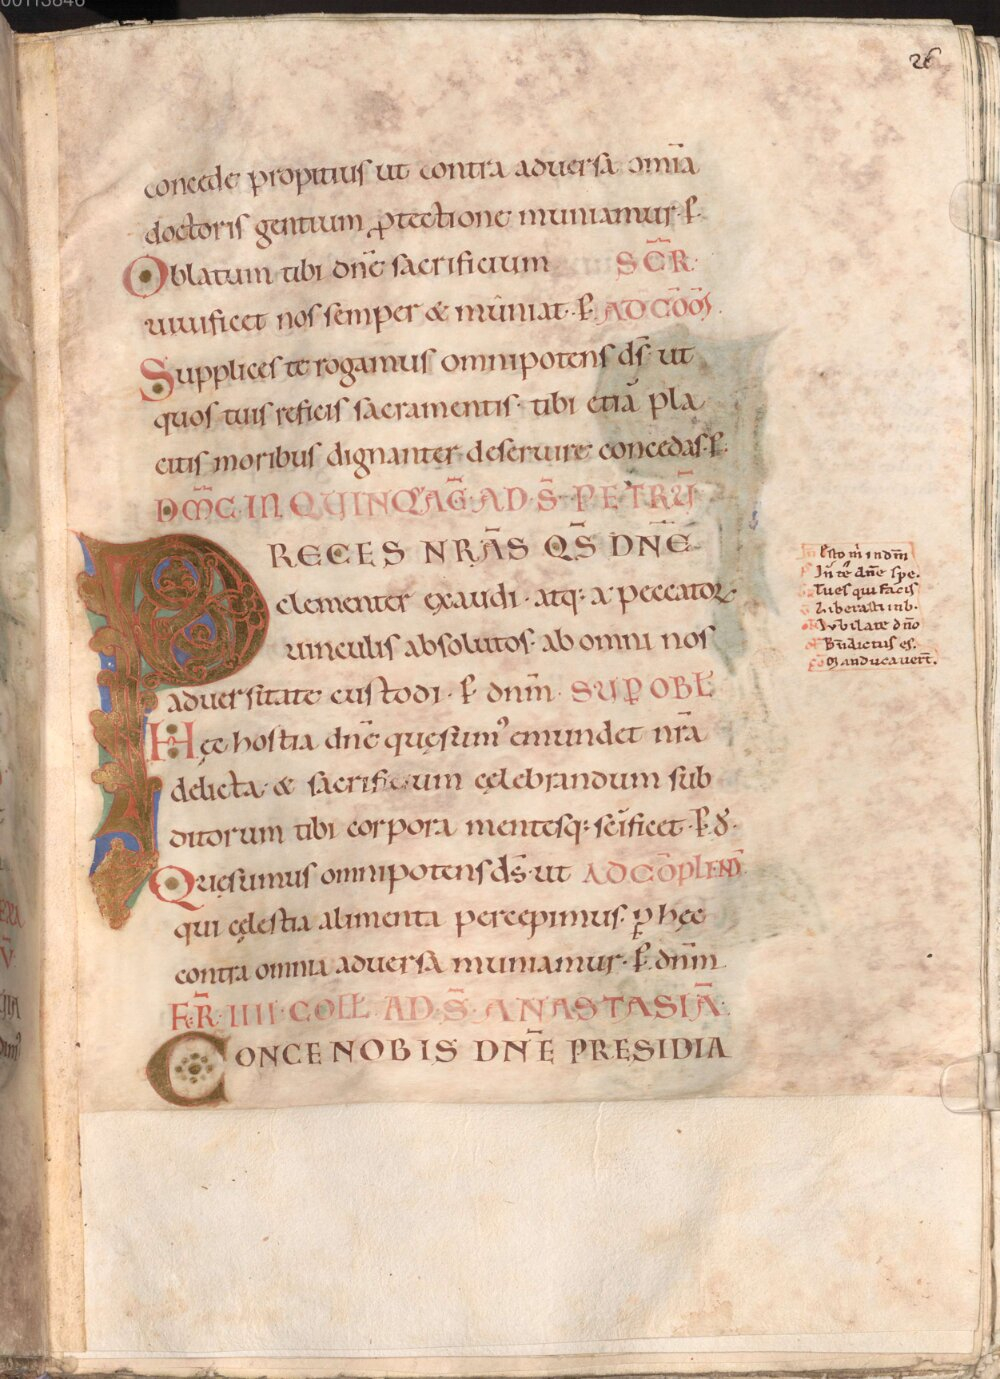 26
concede propitius ut contra aduersa om̄ia
doctoris gentium ꝓtectione muniamur· ꝑ
Oblatum tibi dn̄e sacrificium SCR̄
uiuificet nos semper & muniat· ꝑ AD CŌŌS
Supplices te rogamus omnipotens ds̄· ut
quos tuis reficis sacramentis· tibi etiā pla
citis moribus dignanter deseruire concedas· ꝑ
DMC̄ IN QUINQ'AG̅· AD· S̄· PETRŪ
PRECES NR̄AS QS̄ DN̄E
clementer exaudi· atq: a peccatoꝝ
uinculis absolutos· ab omni nos
aduersitate custodi· ꝑ dnm̄· SUꝑ OBL̄
Hęc hostia dn̄e quęsum' emundet nr̄a
delicta· & sacrificium cęlebrandum sub
ditorum tibi corpora mentesq: sc̄ificet· ꝑ
Quęsumus omnipotens ds̄· ut AD CŌPLEND̄
qui cęlestia alimenta percepimus· ꝑ hęc
contra omnia aduersa muniamur· ꝑ dnm̄
FR̄ IIII COLL̄· AD· S̄· ANASTASIĀ·
CONCE NOBIS DN̄E PRESIDIA
Esto m̄ in dm̄
In te dn̄e spe.
Tu es qui facis
Liberasti
Iubilate dn̄o
Bn̄dictus es.
Manducauer̄t.